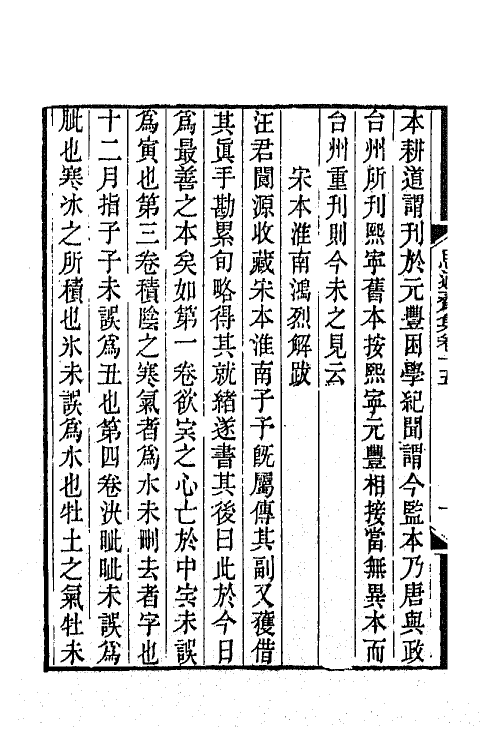 本耕道謂刊於元豐困學紀聞謂今監本乃唐與政
台州所刊熙寧舊本按熙寧元豐相接當無異本而
台州重刊則今未之見云
宋本淮南鴻烈解跋
汪君閬源收藏宋本淮南子予旣屬傳其副又獲借
其眞手勘累旬略得其就緒遂書其後曰此於今日
爲最善之本矣如第一卷欲宲之心亡於中宲未誤
爲寅也第三卷積陰之寒氣者爲水未刪去者字也
十二月指子子未誤爲丑也第四卷決眦眦未誤爲
眦也寒冰之所積也氷未誤爲水也牡土之氣牡未
思適齋集卷十五